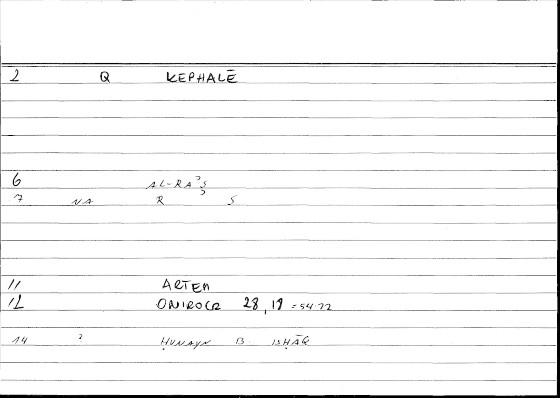 2 Q KEPHALĒ
6 AL-RAʾS
7 NA R ʾ S
11 ARTEM
12 ONIROCR 28,19 = 54.22
14 2 ḤUNAYN B ISḤĀQ